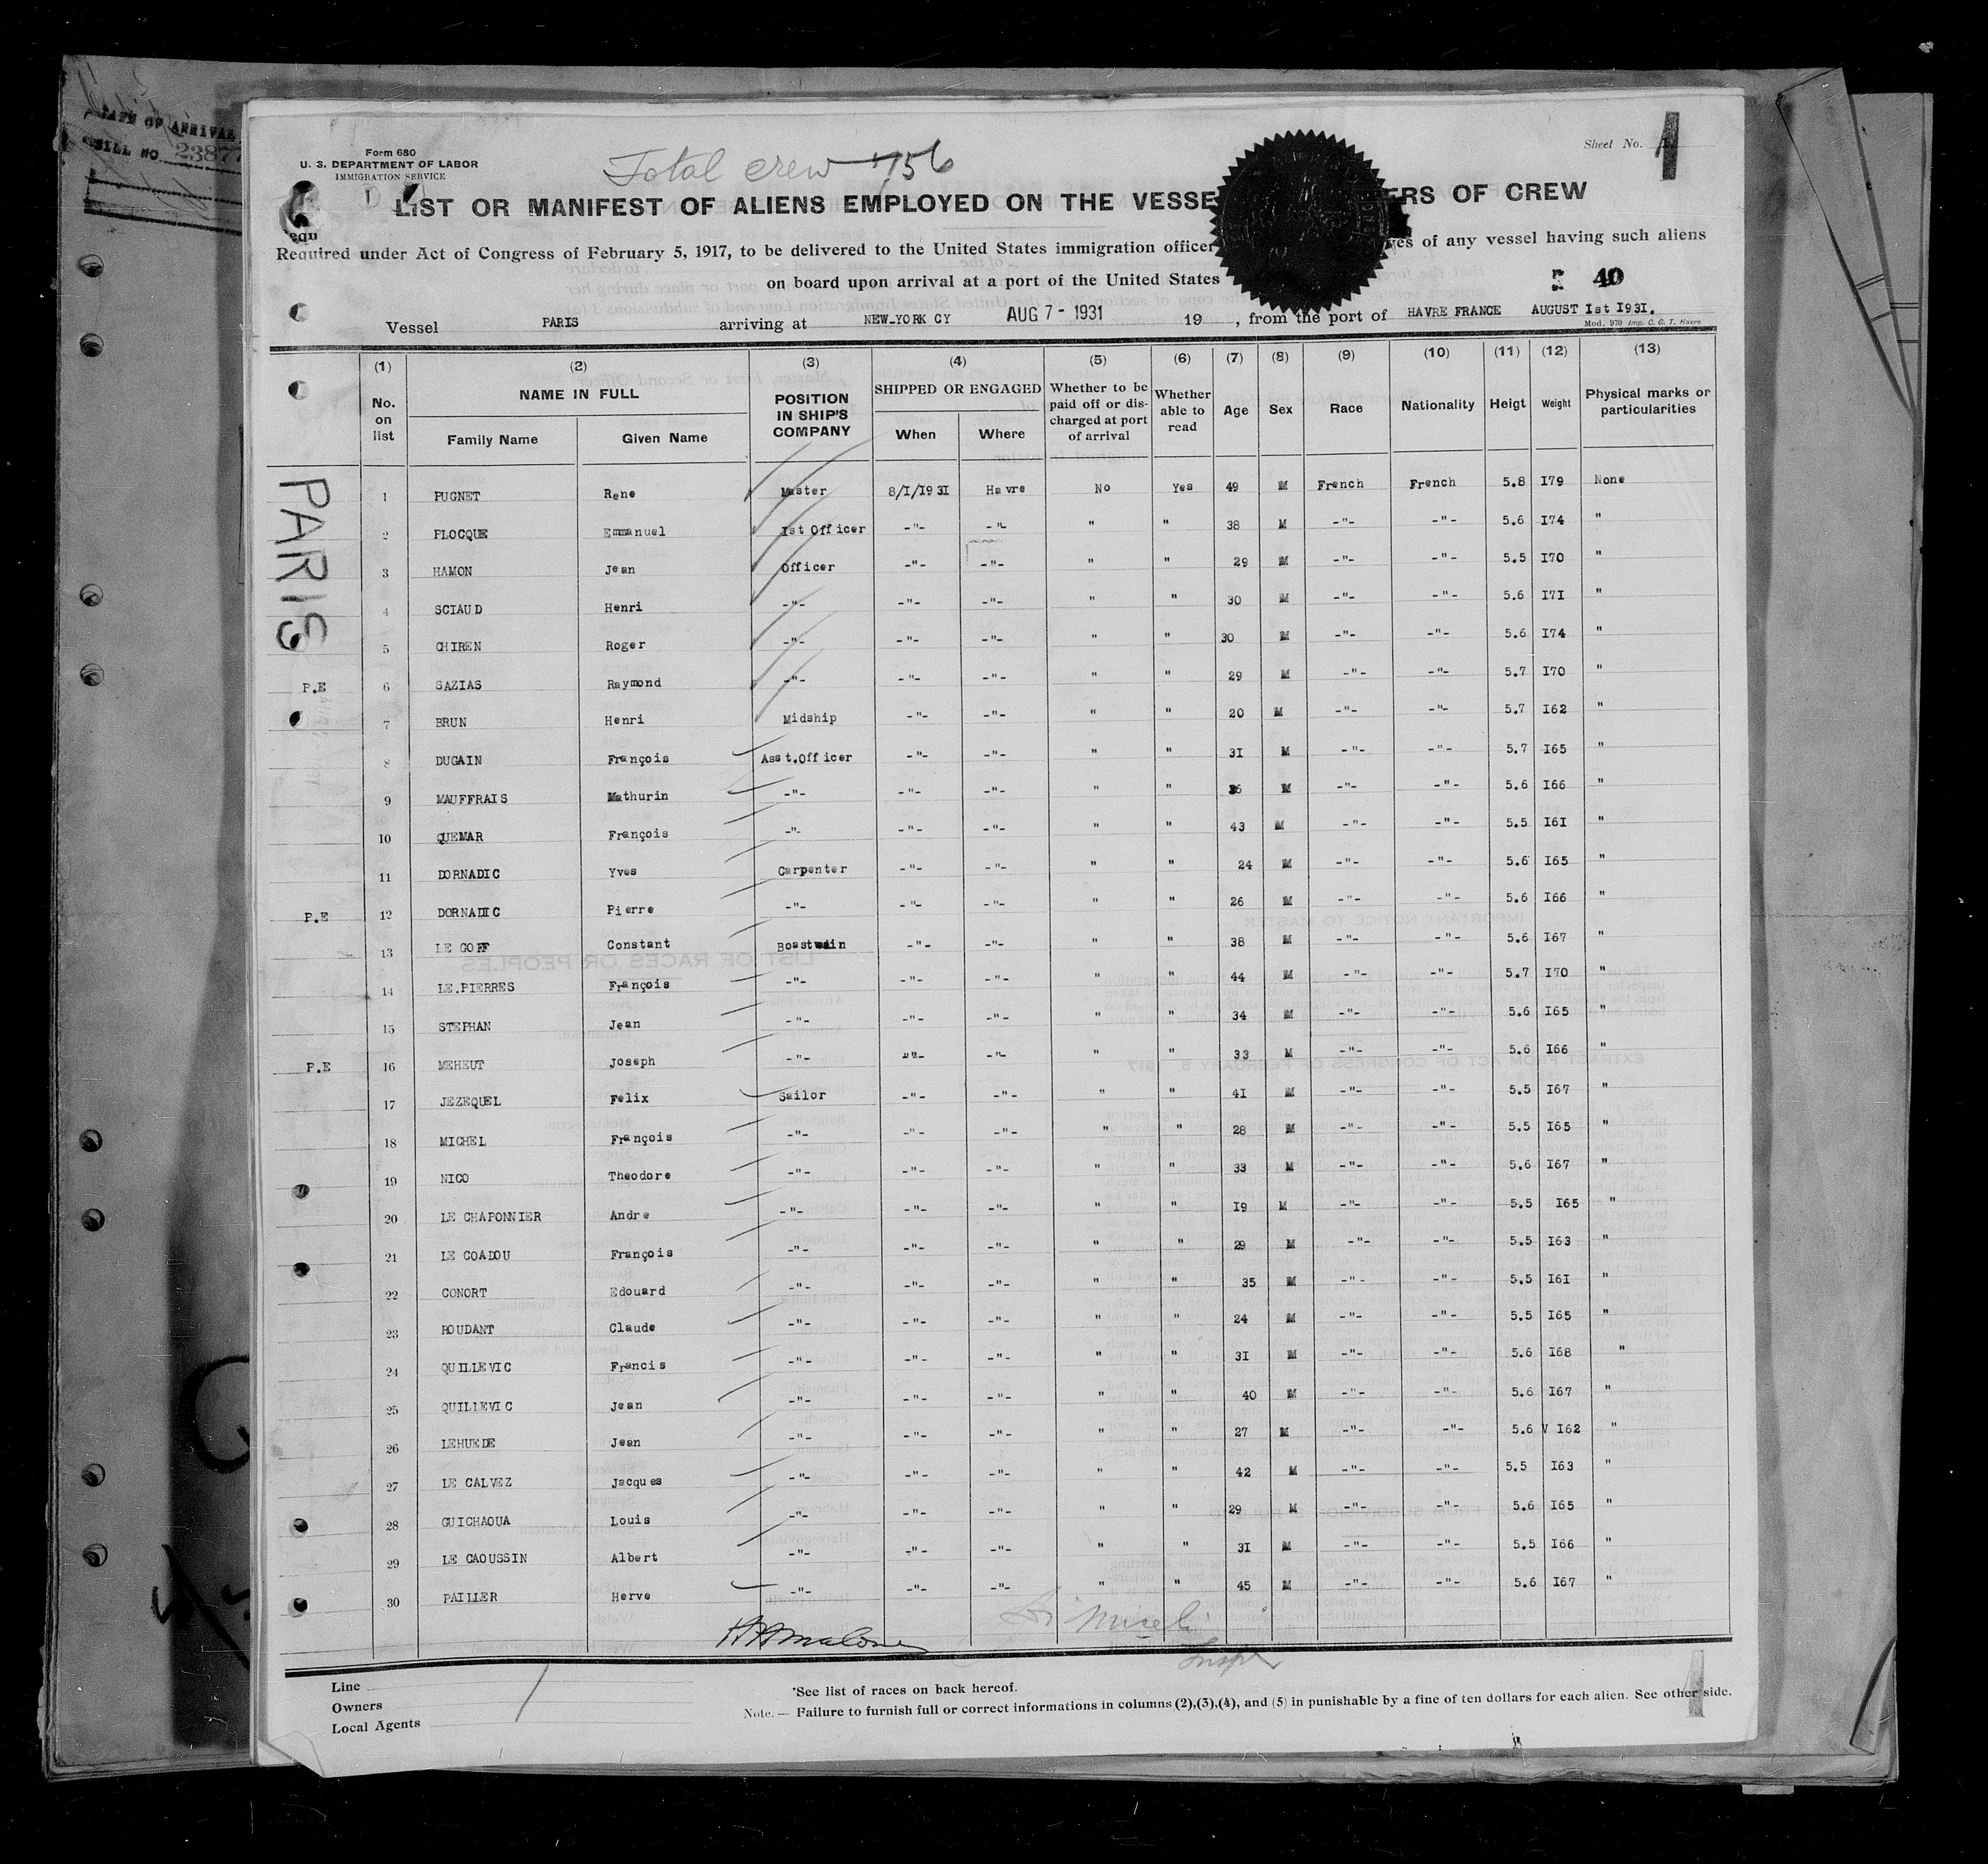 DATE OF ARRIVAL
BILL NO. 23877
Form 680
U. S. DEPARTMENT OF LABOR
IMMIGRATION SERVICE
Total crew 756
Sheet No. 1
LIST OR MANIFEST OF ALIENS EMPLOYED ON THE VESSE ERS OF CREW
Required under Act of Congress of February 5, 1917, to be delivered to the United States immigration officer ves of any vessel having such aliens
on board upon arrival at a port of the United States
40
Vessel PARIS arriving at NEW-YORK CY AUG 7 - 1931 19 , from the port of HAVRE FRANCE AUGUST Ist I931.
Mod. 970 Imp. C. G. T. Havre
(1) (2) (3) (4) (5) (6) (7) (8) (9) (10) (11) (12) (13)
No. on list NAME IN FULL Family Name Given Name POSITION IN SHIP'S COMPANY SHIPPED OR ENGAGED When Where Whether to be paid off or discharged at port of arrival Whether able to read Age Sex Race Nationality Heigt Weight Physical marks or particularities
PARIS
1 PUGNET Rene Master 8/I/I931 Havre No Yes 49 M French French 5.8 I79 None
2 PLOCQUE Emmanuel Ist Officer -"- -"- " " 38 M -"- -"- 5.6 I74 "
3 HAMON Jean Officer -"- -"- " " 29 M -"- -"- 5.5 I70 "
4 SCIAUD Henri -"- -"- -"- " " 30 M -"- -"- 5.6 I7I "
5 CHIREN Roger -"- -"- -"- " " 30 M -"- -"- 5.6 I74 "
P.E 6 SAZIAS Raymond -"- -"- -"- " " 29 M -"- -"- 5.7 I70 "
7 BRUN Henri Midship -"- -"- " " 20 M -"- -"- 5.7 I62 "
8 DUGAIN François Asst.Officer -"- -"- " " 3I M -"- -"- 5.7 I65 "
9 MAUFFRAIS Mathurin -"- -"- -"- " " M -"- -"- 5.6 I66 "
10 QUEMAR François -"- -"- -"- " " 43 M -"- -"- 5.5 I6I "
11 DORNADIC Yves Carpenter -"- -"- " " 24 M -"- -"- 5.6 I65 "
P.E 12 DORNADIC Pierre -"- -"- -"- " " 26 M -"- -"- 5.6 I66 "
13 LE GOFF Constant Boastwain -"- -"- " " 38 M -"- -"- 5.6 I67 "
14 LE.PIERRES François -"- -"- -"- " " 44 M -"- -"- 5.7 I70 "
15 STEPHAN Jean -"- -"- -"- " " 34 M -"- -"- 5.6 I65 "
P.E 16 MEHEUT Joseph -"- -"- -"- " " 33 M -"- -"- 5.6 I66 "
17 JEZEQUEL Felix Sailor -"- -"- " " 4I M -"- -"- 5.5 I67 "
18 MICHEL François -"- -"- -"- " " 28 M -"- -"- 5.5 I65 "
19 NICO Theodore -"- -"- -"- " " 33 M -"- -"- 5.6 I67 "
20 LE CHAPONNIER Andre -"- -"- -"- " " I9 M -"- -"- 5.5 I65 "
21 LE COADOU François -"- -"- -"- " " 29 M -"- -"- 5.5 I63 "
22 CONORT Edouard -"- -"- -"- " " 35 M -"- -"- 5.5 I6I "
23 ROUDANT Claude -"- -"- -"- " " 24 M -"- -"- 5.5 I65 "
24 QUILLEVIC Francis -"- -"- -"- " " 3I M -"- -"- 5.6 I68 "
25 QUILLEVIC Jean -"- -"- -"- " " 40 M -"- -"- 5.6 I67 "
26 LEHUEDE Jean -"- -"- -"- " " 27 M -"- -"- 5.6 V I62 "
27 LE CALVEZ Jacques -"- -"- -"- " " 42 M -"- -"- 5.5 I63 "
28 GUICHAOUA Louis -"- -"- -"- " " 29 M -"- -"- 5.6 I65 "
29 LE CAOUSSIN Albert -"- -"- -"- " " 3I M -"- -"- 5.5 I66 "
30 PAILLER Herve -"- -"- -"- " " 45 M -"- -"- 5.6 I67 "
Line
Owners
Local Agents
*See list of races on back hereof.
Note. — Failure to furnish full or correct informations in columns (2),(3),(4), and (5) in punishable by a fine of ten dollars for each alien. See other side.
1